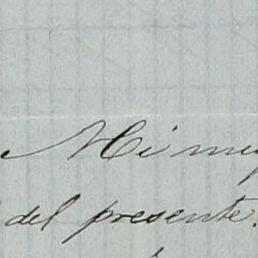 Mi muy
del presente.